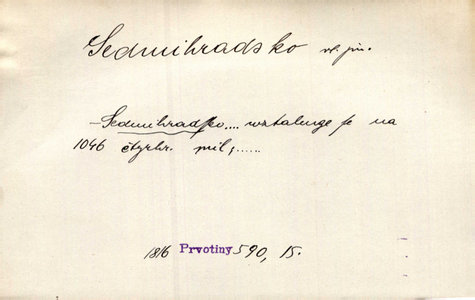 Sedmihradsko vl. jm.
Sedmihradsko.... wztahuge se na
1046 čtyrhr. mil;......
1816 Prvotiny 590, 15.